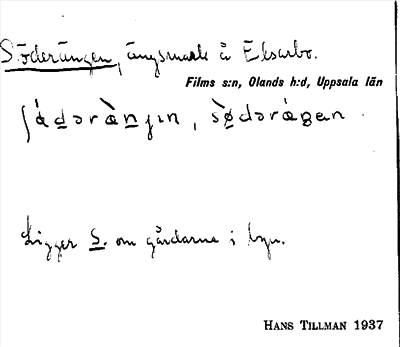 Söderängen, ängsmark å Elsarbo.
Films s:n, Olands h:d, Uppsala län
Ligger S. om gårdarna i byn.
HANS TILLMAN 1937